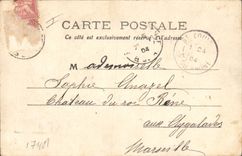 CARTE POSTALE
Ce côté est exclusivement réservé à l'adresse.
04
04
Mademoiselle
Sophie
Chateau du roi Réné
aux Aygalades
Marseille
17481